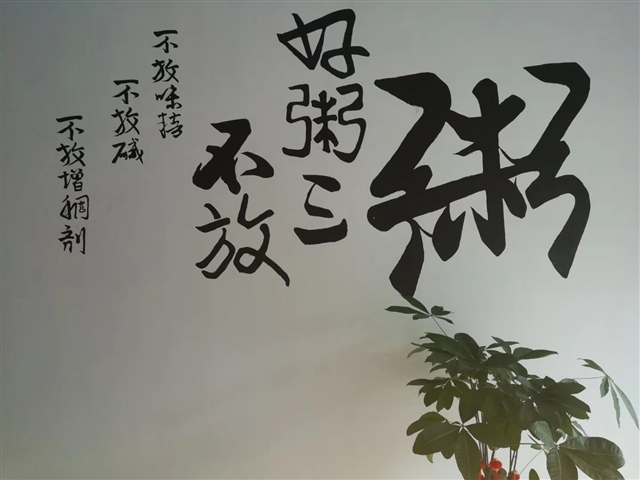 粥
好粥三
不放
不放味精
不放碱
不放增稠剂